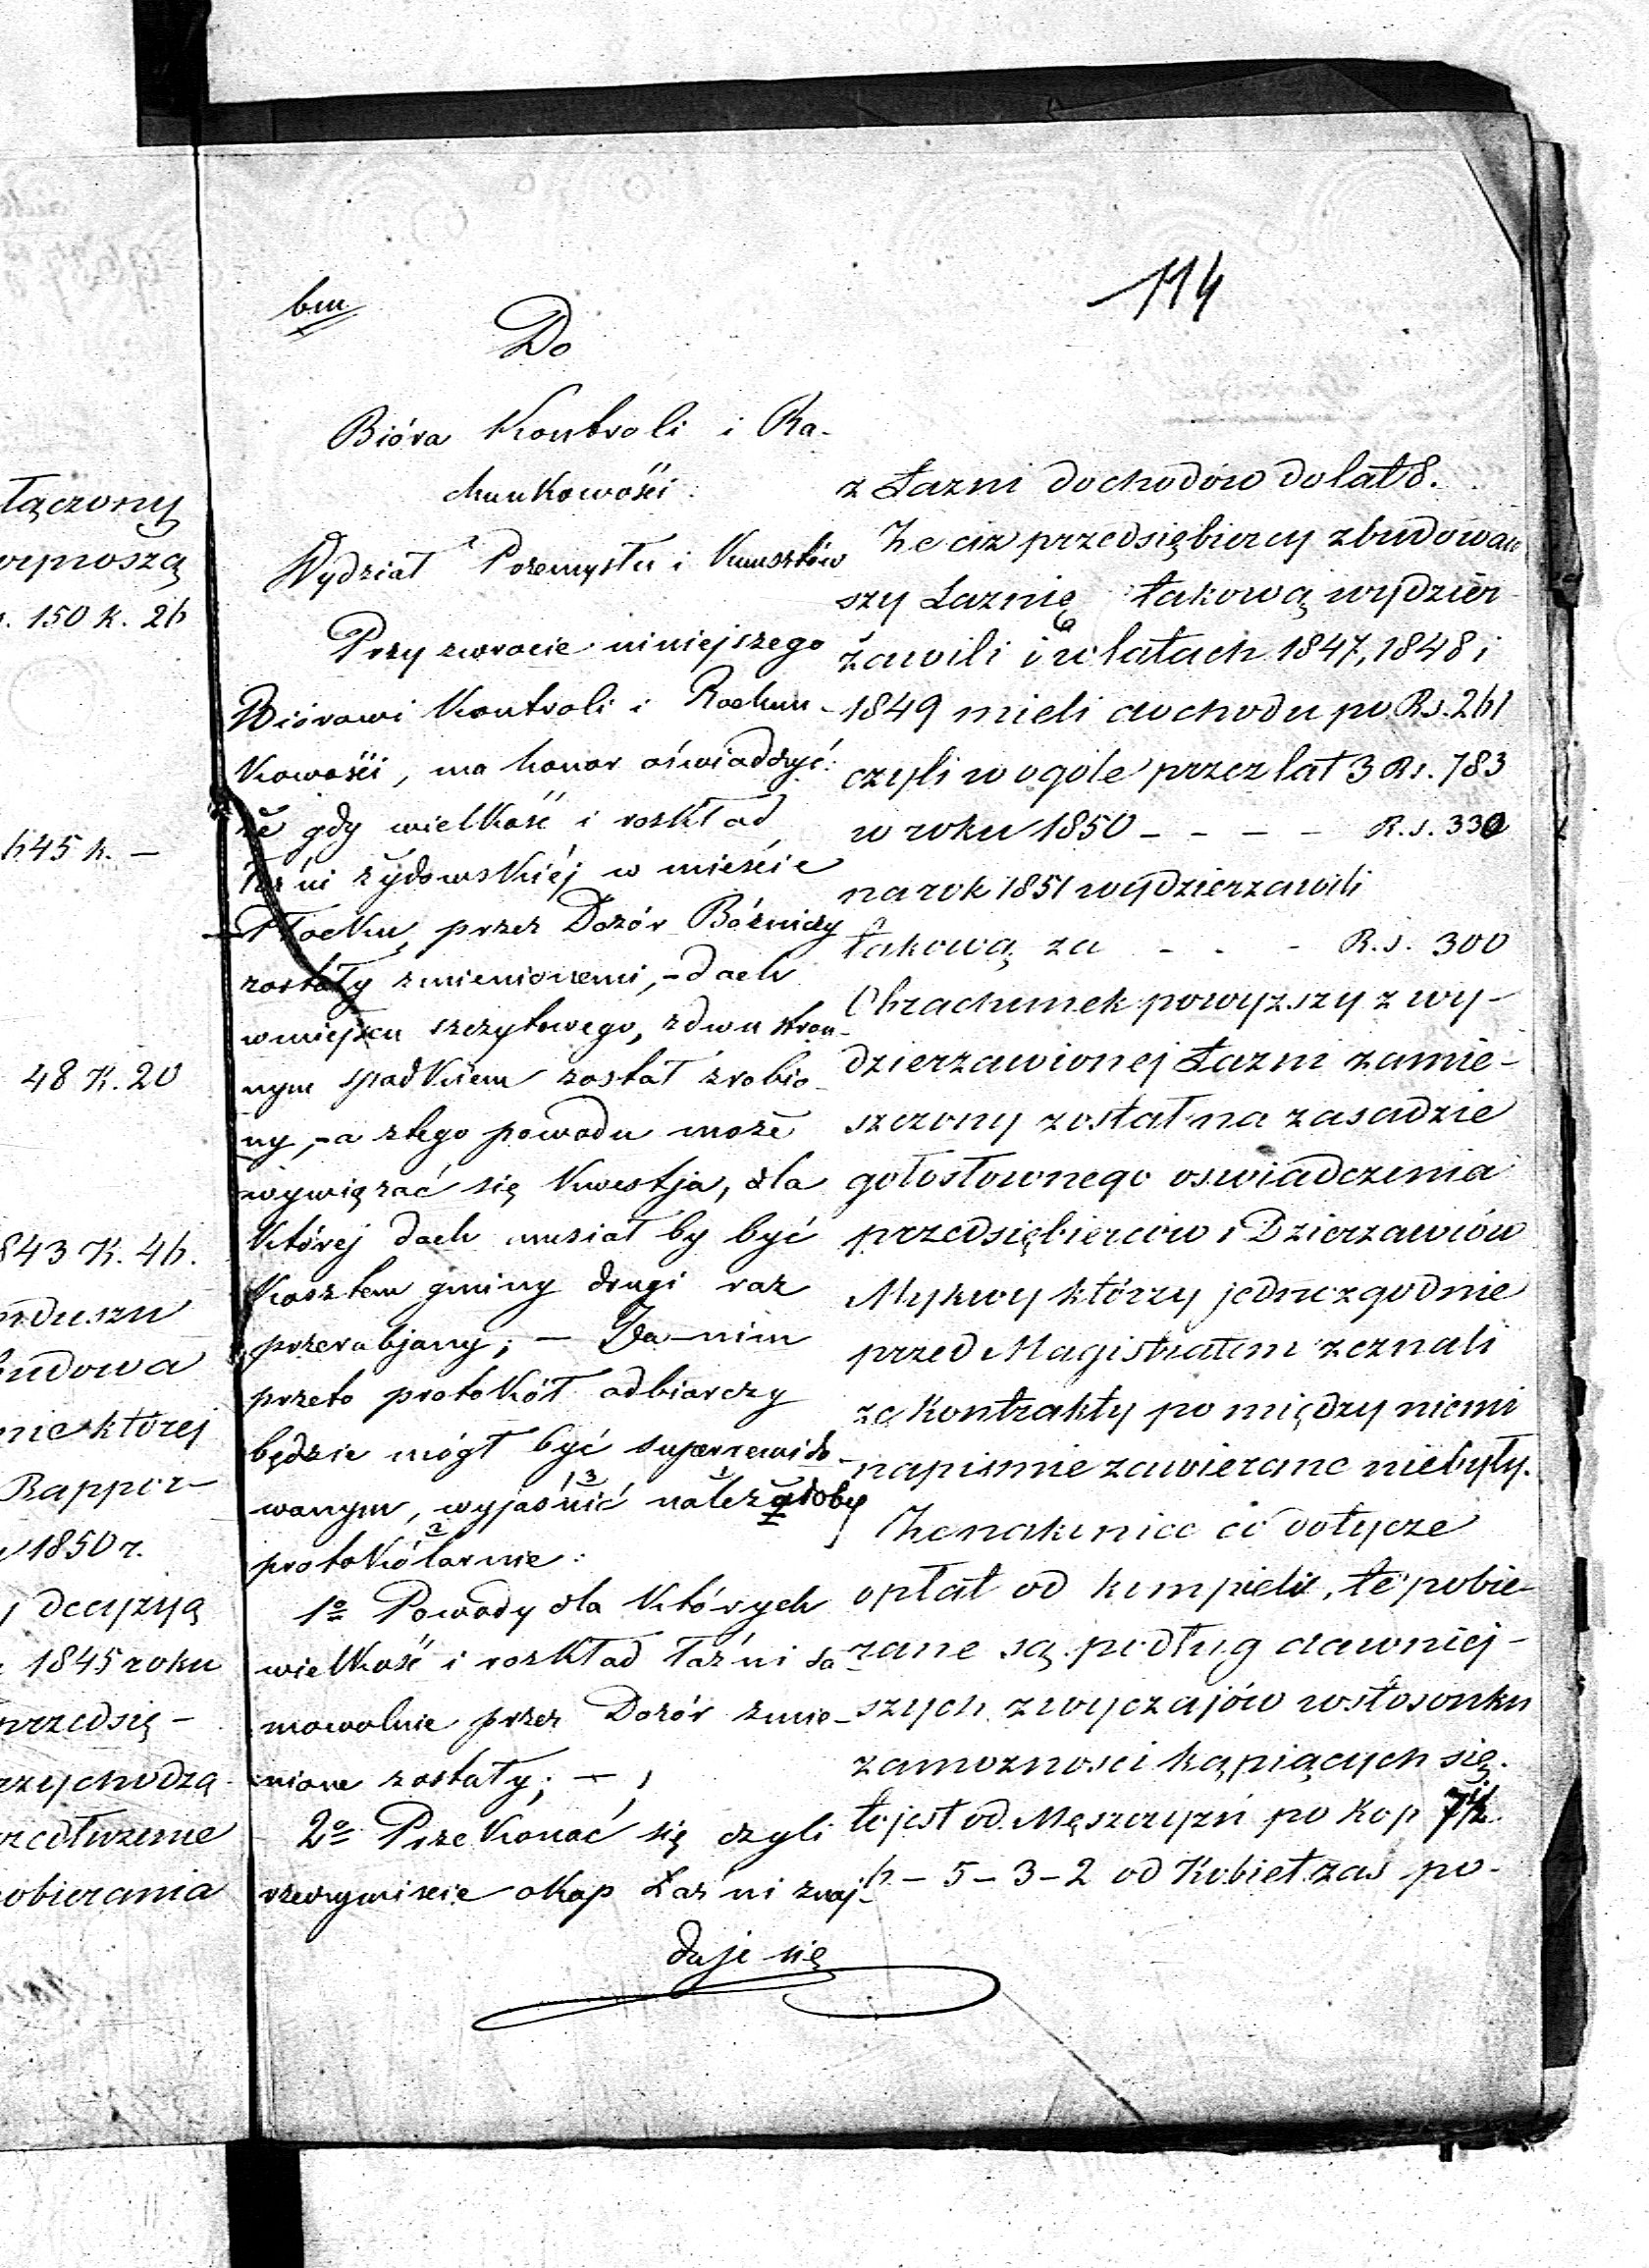 łączony
wynoszą
. 150 k. 26
645 k. —
48 K. 20
843 K. 46.
nduszu
budowa
nie której
Rappor-
1850 r.
decyzyą
1845 roku
przedsię-
rzychodzą
obierania
114
bm
Do
Bióra Kontroli i Ra-
chunkowości:
Wydział Przemysłu i Kunsztów
Przy zwrocie niniejszego
Biórowi Kontroli i Rachun-
kowości, ma honor oświadczyć:
że gdy wielkość i rozkład
łaźni żydowskiéj w mieście
Płocku, przez Dozór Bóżniczy
zostały zmienionemi, - dach
w miejscu szczytowego, z dwu stron-
nym spadkiem został zrobio-
ny, - a z tego powodu może
wywiązać się kwestja, dla
której dach musiał by być
kosztem gminy drugi raz
przerabjany; — Za-nim
przeto protokół odbiorczy
będzie mógł być superrewido-
wanym, wyjaśnić należałoby
protokólarnie:
1o Powody dla których
wielkość i rozkład łaźni sa-
mowolnie przez Dozór zmie-
nione zostały; —
2o Przekonać się czyli
rzeczywiście okap Łaźni znaj-
duje się
z Łazni dochodów do lat 8.
Że ciż przedsiębiercy zbudowaw
szy Łaznię takową wydzier-
żawili i w latach 1847, 1848 i
1849 mieli dochodu po Rs. 261
czyli w ogóle przez lat 3 Rs. 783
w roku 1850 - - - - R.s. 330
na rok 1851 wydzierzawili
takową za - - - R.s. 300
Obrachunek powyższy z wy-
dzierzawionej Łazni zamie-
szczony został na zasadzie
gołosłownego oswiadczenia
przedsiębierców i Dzierzawców
Mykwy którzy jednozgodnie
przed Magistratem zeznali
że Kontrakty po między niemi
napismie zawierane niebyły.
Że nakoniec co dotycze
opłat od kompieli, te pobie-
rane są podług dawniej-
szych zwyczajów w stosonku
zamoznosci kąpiących się.
to jest od Męszczyzn po Kop 7½
6 - 5 - 3 - 2 od Kobiet zas po-